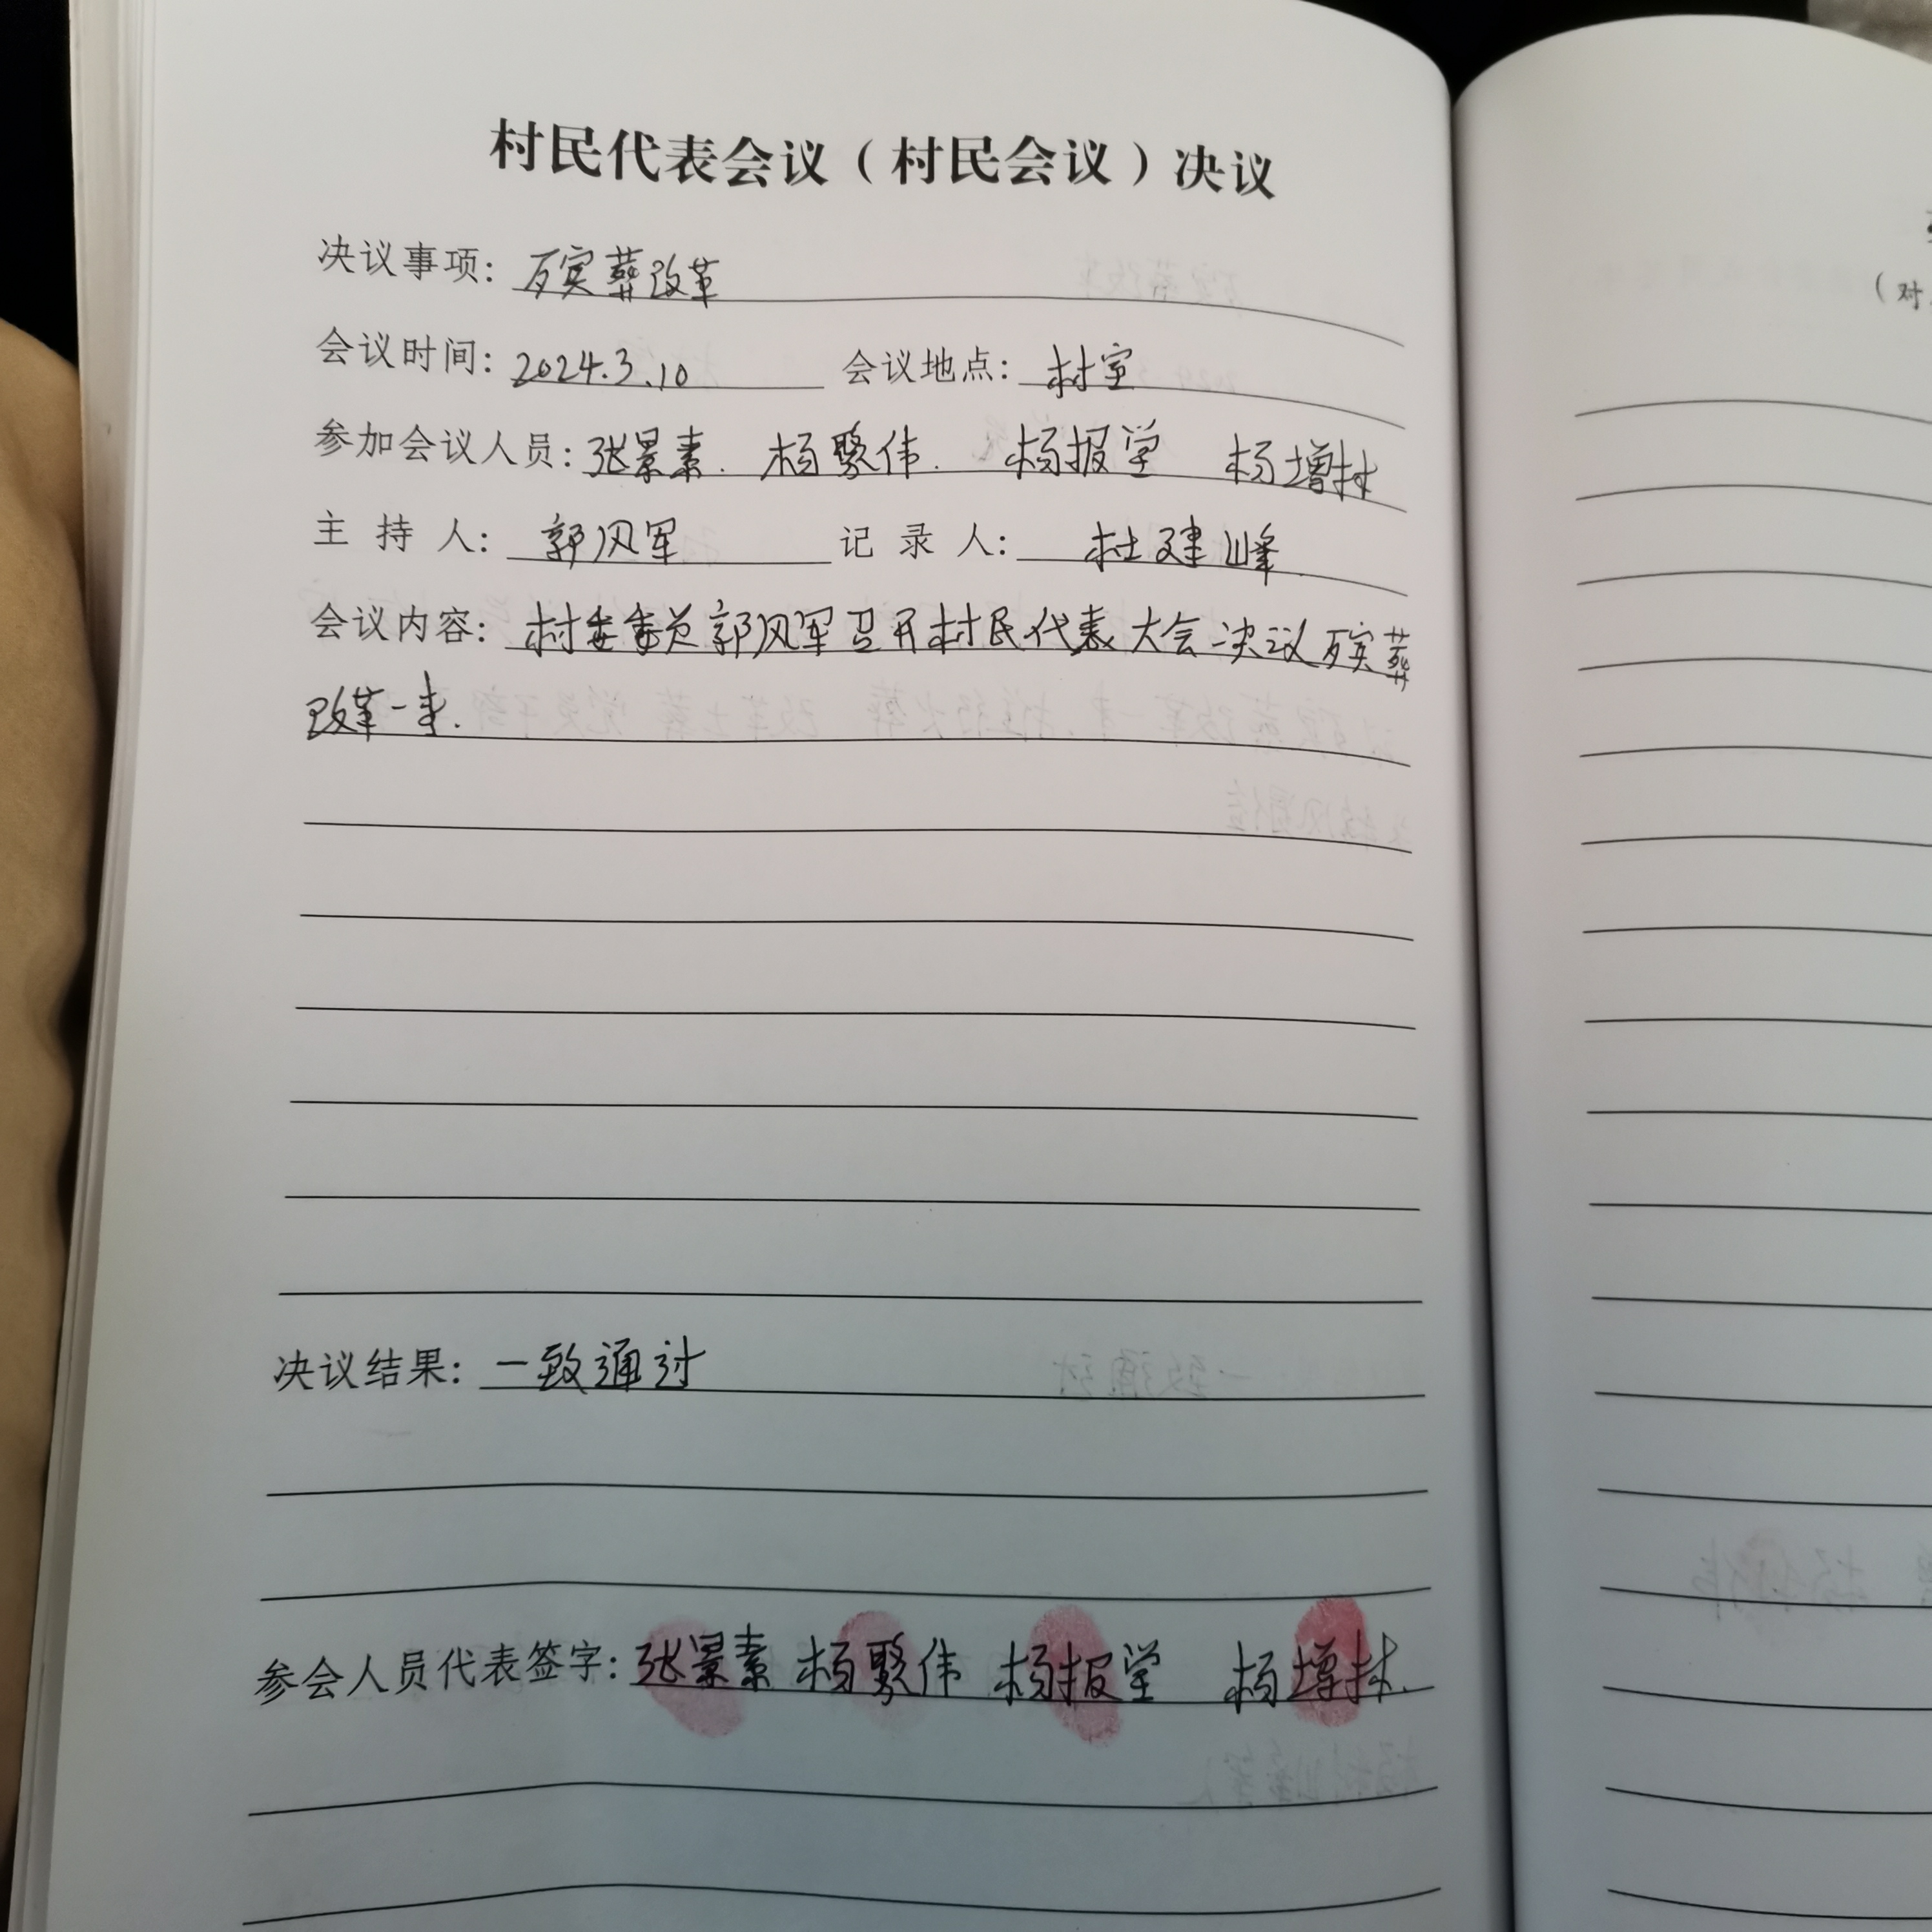 村民代表会议（村民会议）决议
决议事项：殡葬改革
会议时间：2024.3.10 会议地点：村室
参加会议人员：张景素. 杨聚伟. 杨报堂 杨增林
主持人：郭风军 记录人：杜建峰
会议内容：村委委员郭风军召开村民代表大会决议殡葬
改革一事.
决议结果：一致通过
参会人员代表签字：张景素 杨聚伟 杨报堂 杨增林.
（对